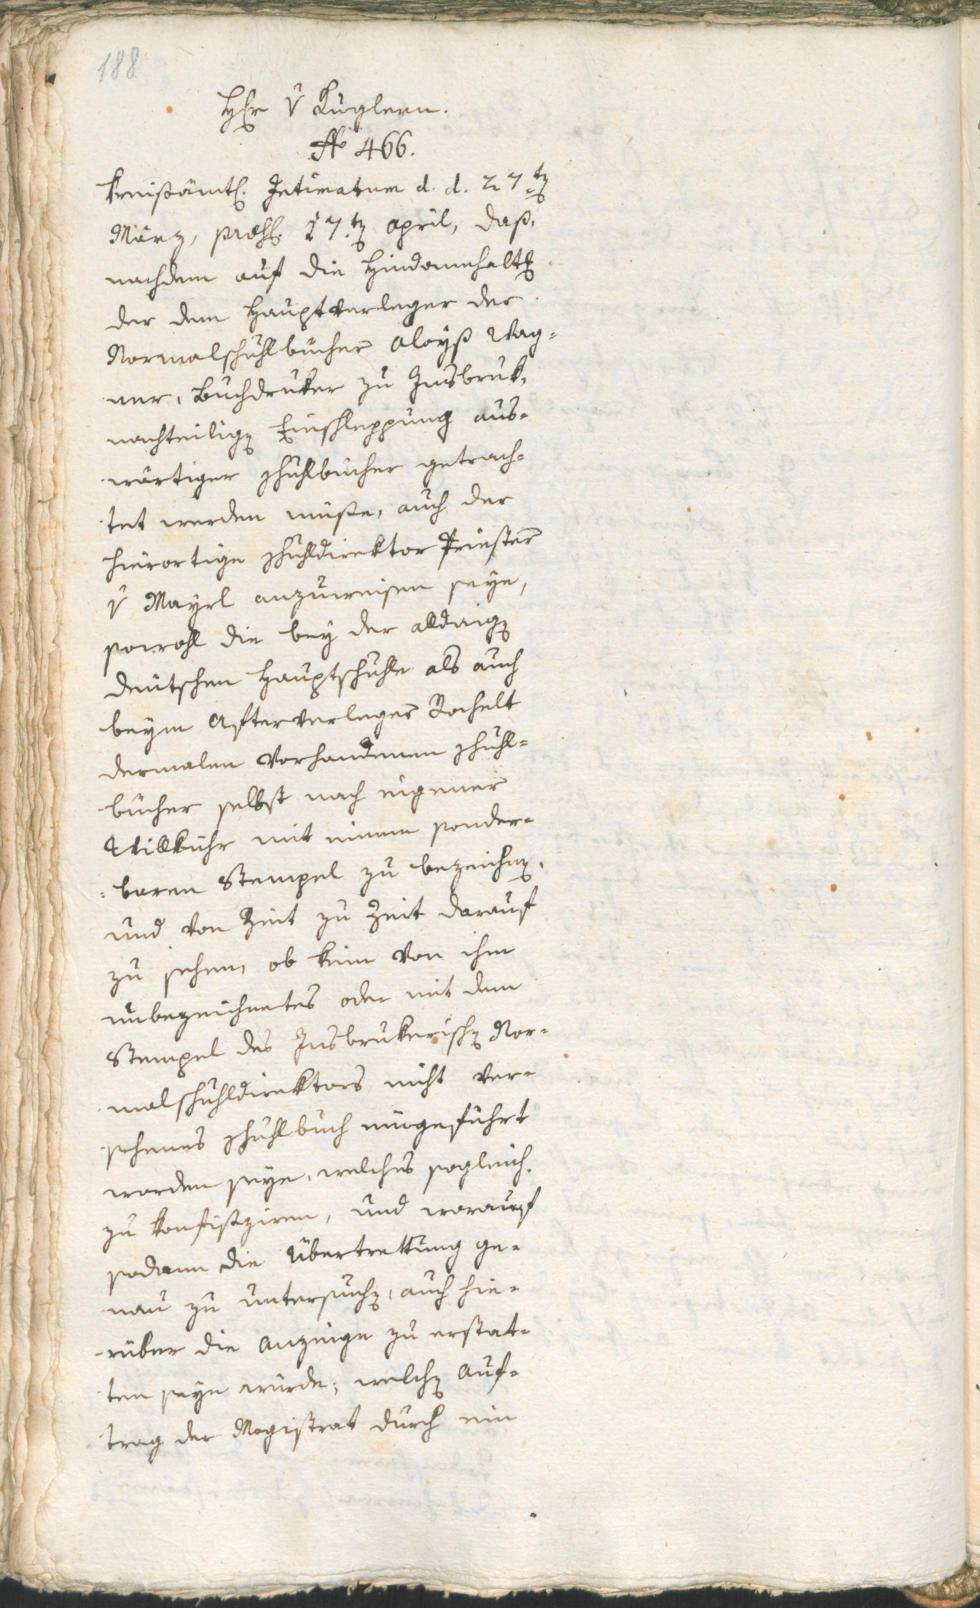 188
Hr v Kuglern.
No 466.
Kreißämtl. Intimatum d. d. 27ten
März, præs. 17ten april, daß,
nachdem auf die Hindannhaltg
der dem Hauptverleger der
Normalschuhlbücher Aloys Wag-
ner, Buchdruker zu Insbruk,
nachteiligen Einschleppung aus-
wärtiger Schuhlbücher getrach-
tet werden müste, auch der
hierortige Schuhldirektor Priester
v Mayrl anzuweisen seye,
sowohl die bey der alldaigen
deutschen Hauptschuhle als auch
beym Afterverleger
dermalen vorhandenen Schuhl-
bücher selbst nach eigener
Willkühr mit einem sonder-
baren Stempel zu bezeichnen,
und von Zeit zu Zeit darauf
zu sehen, ob kein von ihm
unbezeichnetes oder mit dem
Stempel des Insbrukerischen Nor-
malschuhldirektors nicht ver-
sehenes Schuhlbuch eingeführt
worden seye, welches sogleich
zu konfisziren, und worauf
sodann die Übertrettung ge-
nau zu untersuchen, auch hie-
rüber die Anzeige zu erstat-
ten seyn würde; welchen Auf-
trag der Magistrat durch ein